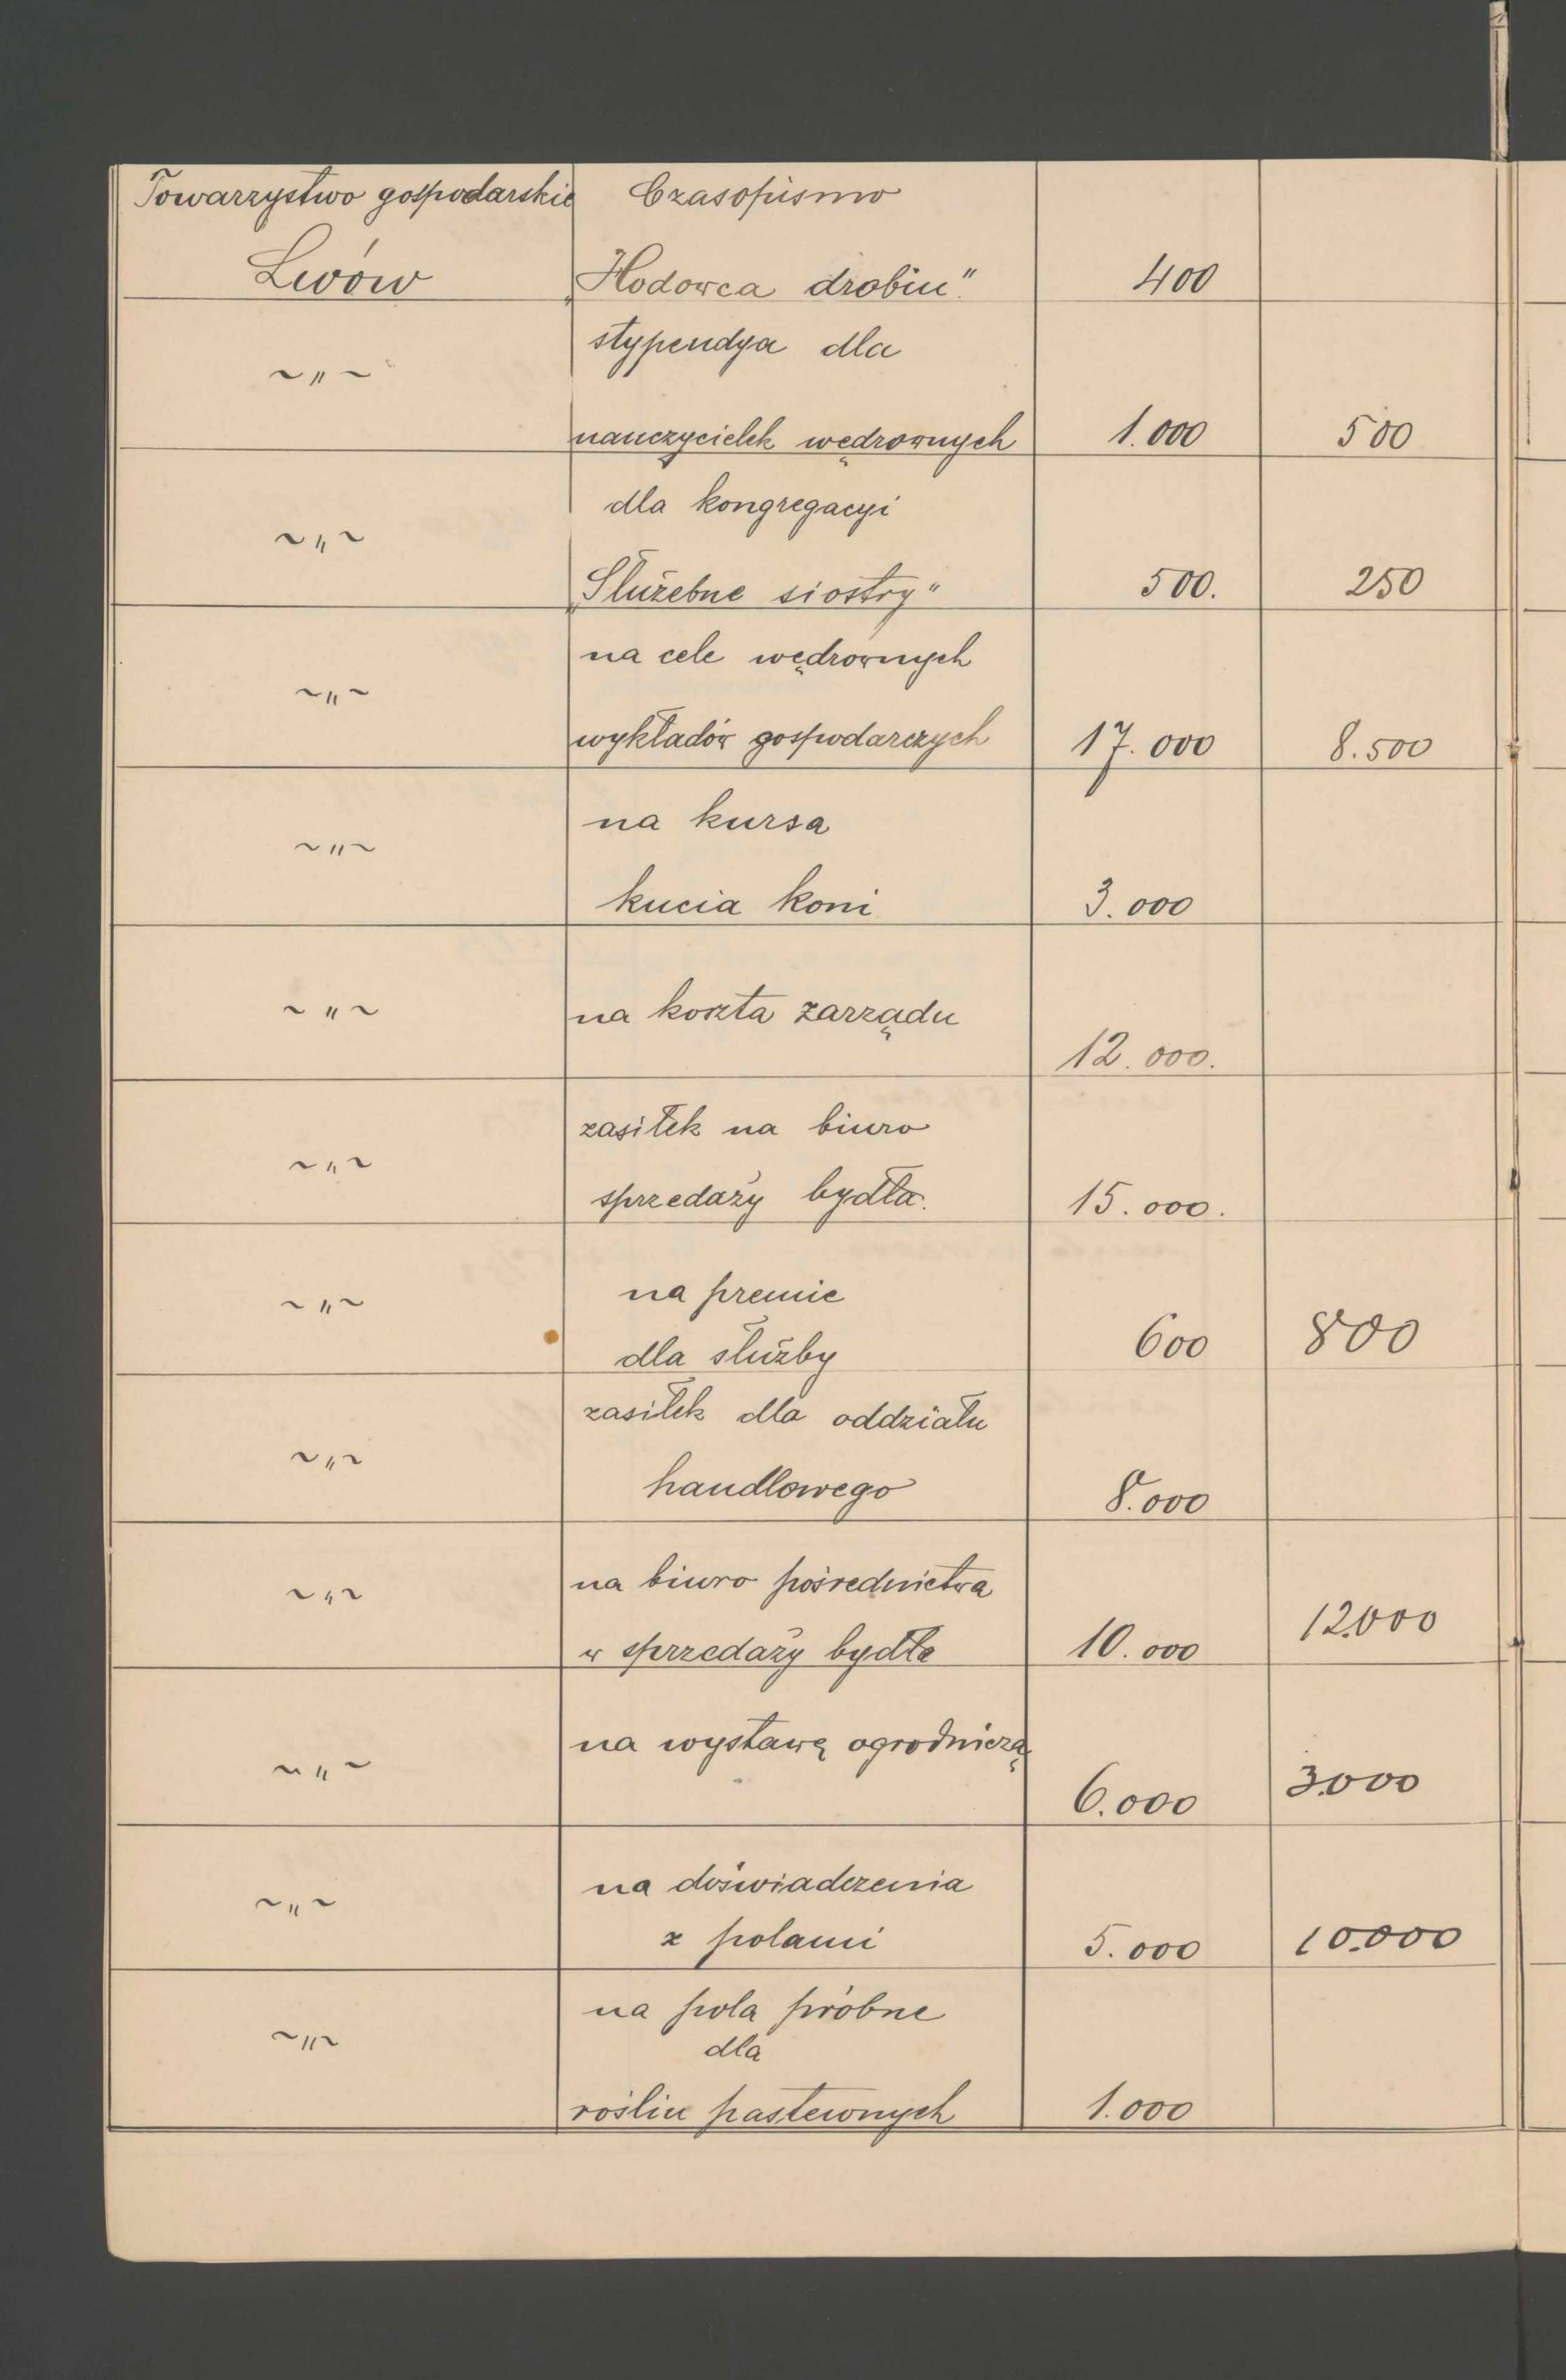 Towarzystwo gospodarskie Czasopismo
Lwów „Hodowca drobiu" 400
stypendya dla
~ " ~
nauczycielek wędrownych 1.000 500
dla kongregacyi
~ " ~
„Służebne siostry" 500. 250
na cele wędrownych
~ " ~
wykładów gospodarczych 17.000 8.500
na kursa
~ " ~
kucia koni 3.000
~ " ~ na koszta zarządu
12.000.
zasiłek na biuro
~ " ~
sprzedaży bydła. 15.000.
na premie
~ " ~
dla służby 600 800
zasiłek dla oddziału
~ " ~
handlowego 8.000
na biuro pośrednictwa
~ " ~
w sprzedaży bydła 10.000 12.000
na wystawę ogrodniczą
~ " ~
6.000 3.000
na doświadczenia
~ " ~
z polami 5.000 10.000
na pola próbne
~ " ~
dla
roślin pastewnych 1.000